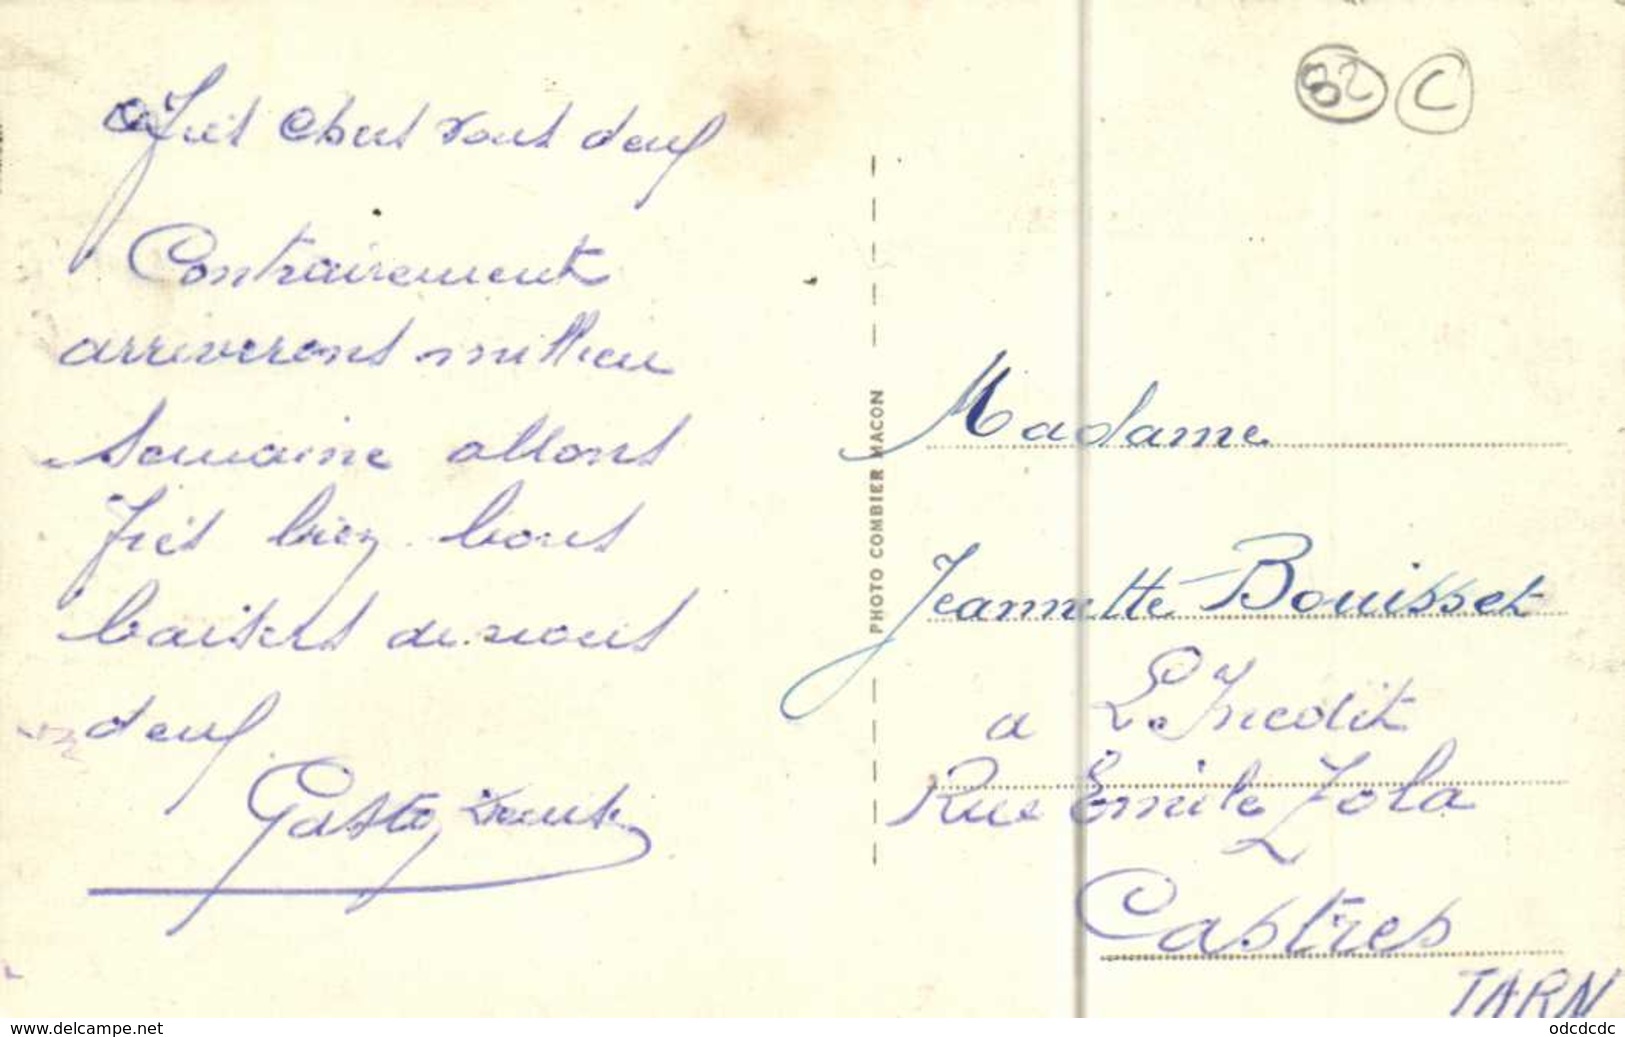 Très chers vous deux
Contrairement
arriverons millieu
semaine allons
très bien bons
baisers de nous
deux
Gaston
PHOTO COMBIER MACON
32 C
Madame
Jeannette Bouisset
a L'Inedit
Rue Emile Zola
Castres
TARN
www.delcampe.net
odcdcdc